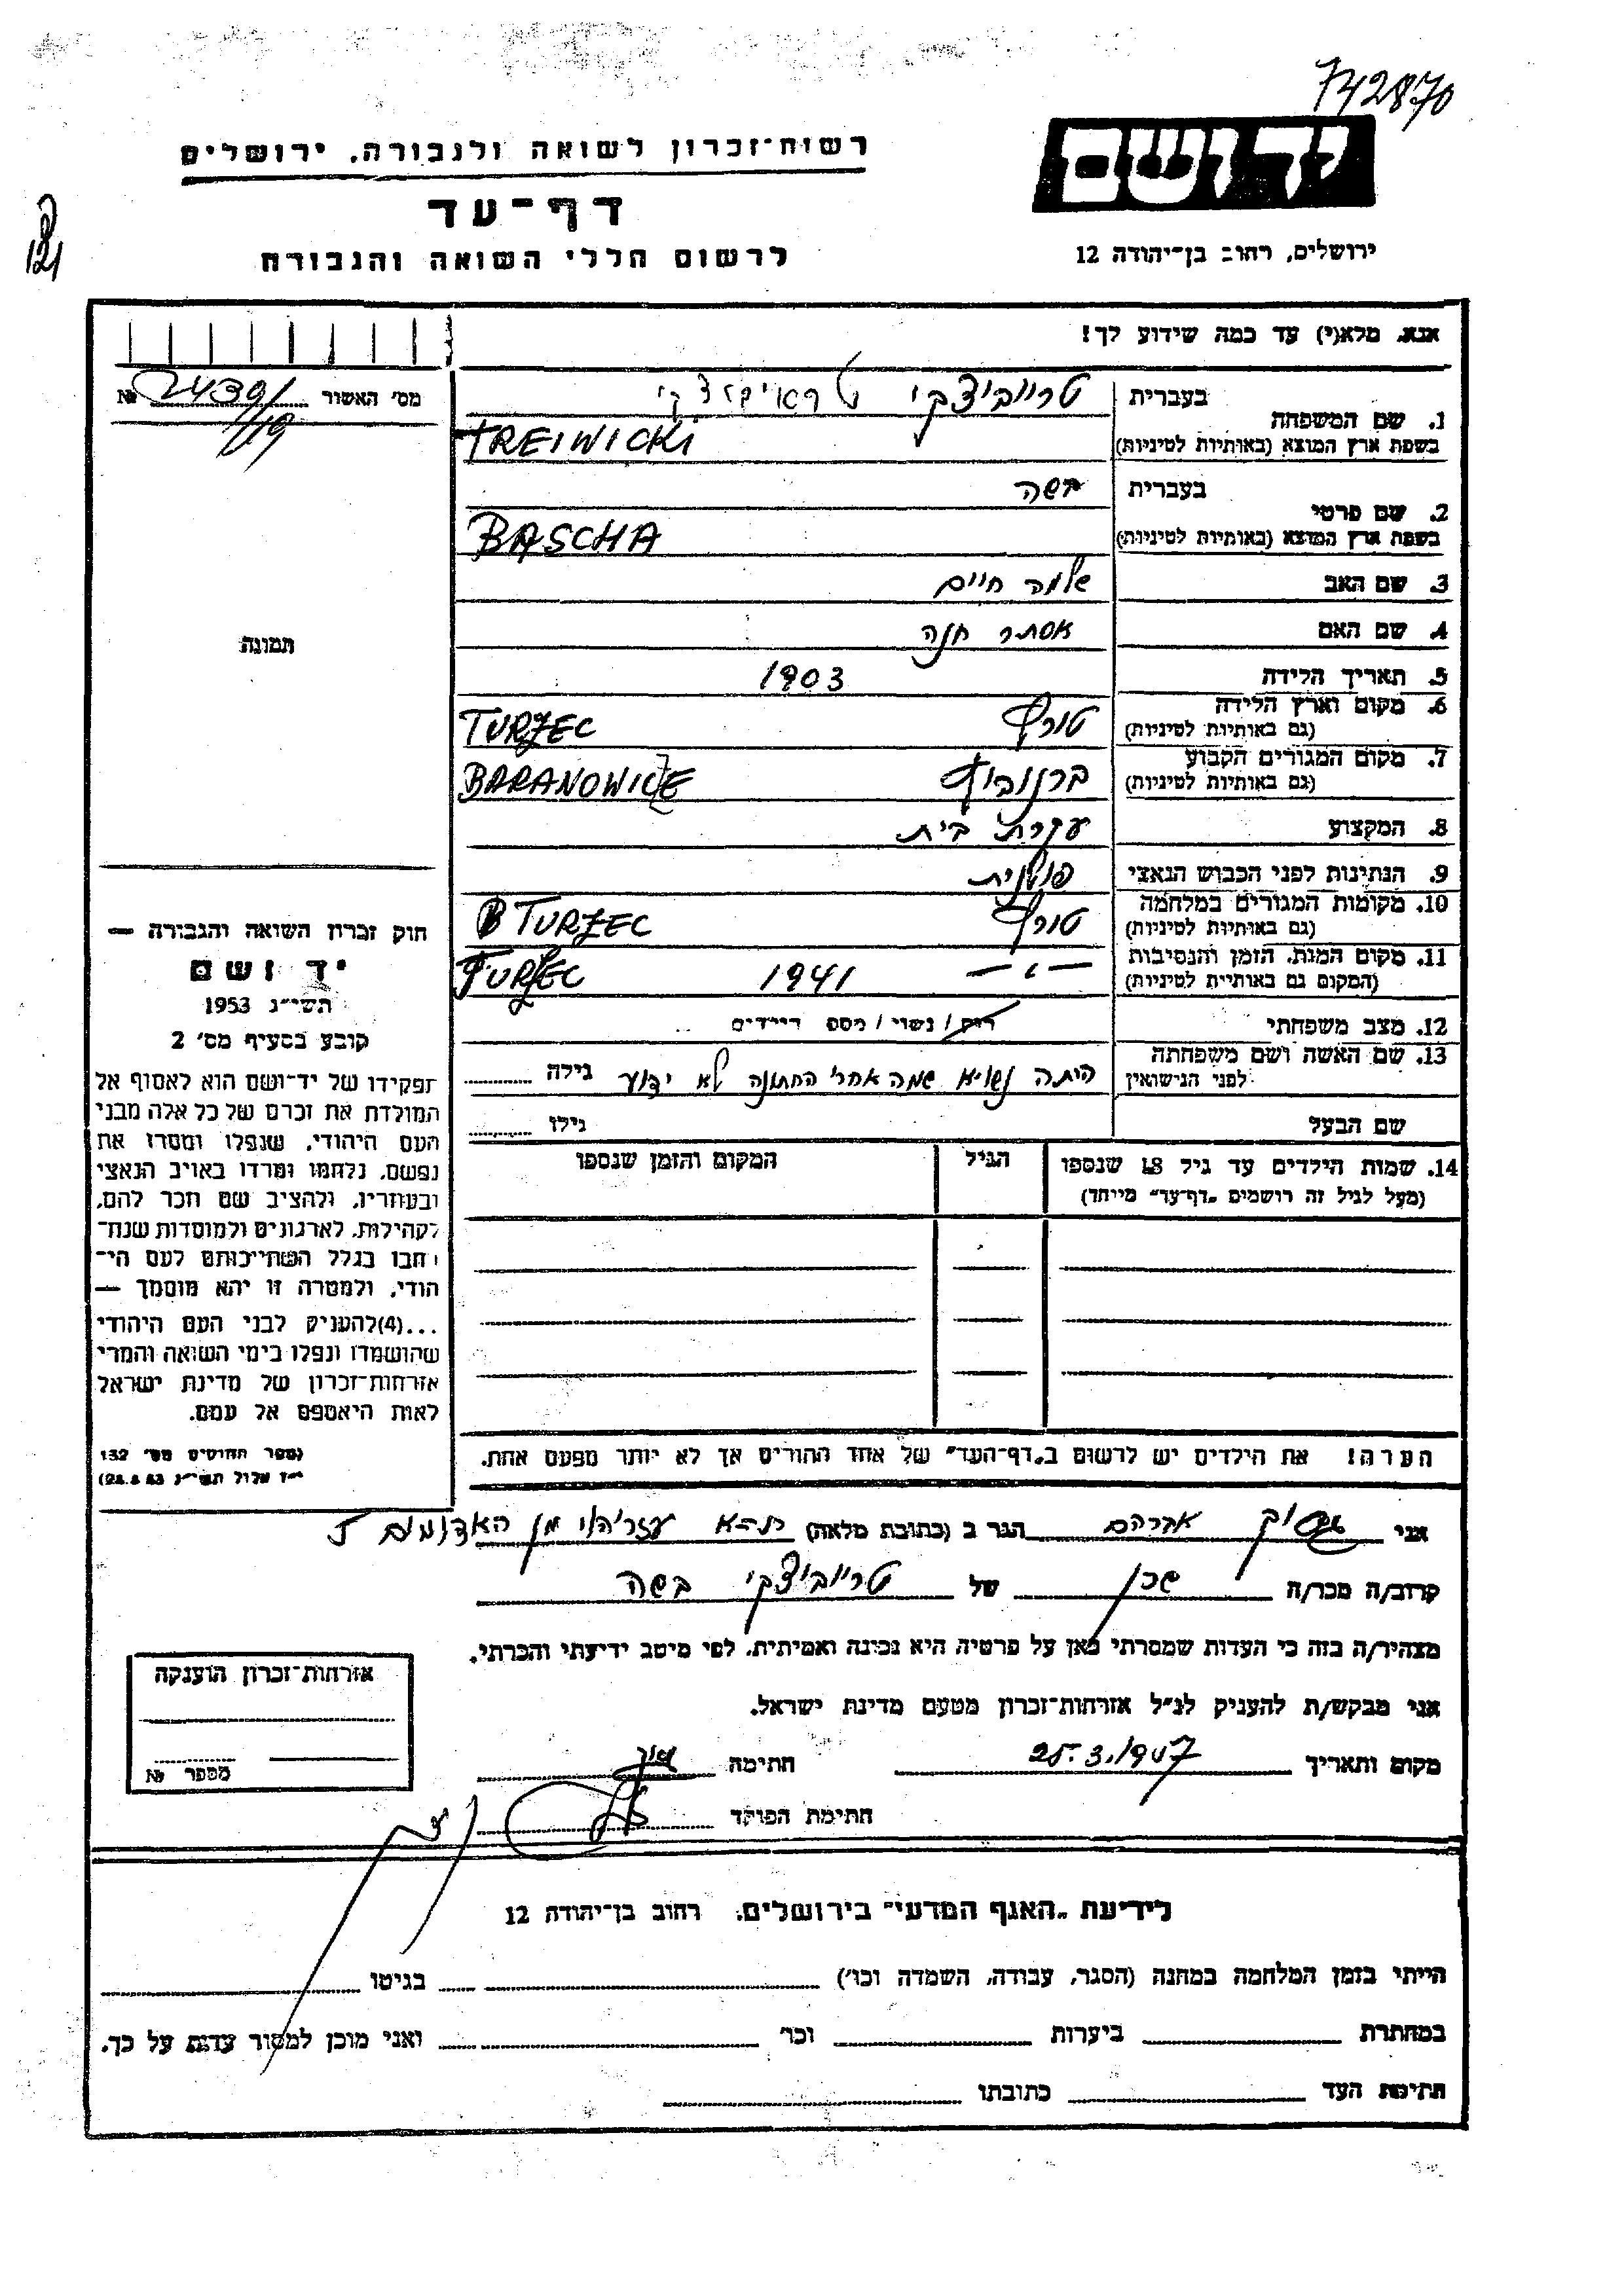 742870
יד ושם
רשות־זכרון לשואה ולגבורה, ירושלים
דף־עד
לרשום חללי השואה והגבורה
ירושלים, רחוב בן־יהודה 12
121
אנא, מלא(י) עד כמה שידוע לך!
מס׳ האשור 2439/ №
/19
תמונה
1. שם המשפחה
בעברית טרייביצקי
בשפת ארץ המוצא (באותיות לטיניות) TREIWICKI
2. שם פרטי
בעברית בשה
בשפת ארץ המוצא (באותיות לטיניות) BASCHA
3. שם האב שלמה חיים
4. שם האם אסתר חנה
5. תאריך הלידה 1903
6. מקום וארץ הלידה טורץ TURZEC
(גם באותיות לטיניות)
7. מקום המגורים הקבוע ברנוביץ BARANOWICZE
(גם באותיות לטיניות)
8. המקצוע עקרת בית
9. הנתינות לפני הכבוש הנאצי פולנית
10. מקומות המגורים במלחמה טורץ TURZEC
(גם באותיות לטיניות)
11. מקום המות, הזמן והנסיבות — " — 1941 TURZEC
(המקום גם באותיות לטיניות)
12. מצב משפחתי רוק / נשוי / מספר הילדים
13. שם האשה ושם משפחתה
לפני הנישואין היתה נשואה שמה אחרי החתונה לא ידוע גילה
שם הבעל גילו
14. שמות הילדים עד גיל 18 שנספו הגיל המקום והזמן שנספו
(מעל לגיל זה רושמים „דף־עד״ מייחד)
חוק זכרון השואה והגבורה —
יד ושם
תשי״ג 1953
קובע בסעיף מס׳ 2
תפקידו של יד־ושם הוא לאסוף אל
המולדת את זכרם של כל אלה מבני
העם היהודי, שנפלו ומסרו את
נפשם, נלחמו ומרדו באויב הנאצי
ובעוזריו, ולהציב שם וזכר להם,
לקהילות, לארגונים ולמוסדות שנח־
רבו בגלל השתייכותם לעם הי־
הודי, ולמטרה זו יהא מוסמך —
...(4)להעניק לבני העם היהודי
שהושמדו ונפלו בימי השואה והמרי
אזרחות־זכרון של מדינת ישראל
לאות היאספם אל עמם.
(ספר החוקים מס׳ 132
י״ז אלול תשי״ג 28.8.53)
הערה! את הילדים יש לרשום ב„דף־העד״ של אחד ההורים אך לא יותר מפעם אחת.
אני אברהם הגר ב (כתובת מלאה) ת־א עזריה מן האדומים 5
קרוב/ה מכר/ה שכן של טרייביצקי בשה
מצהיר/ה בזה כי העדות שמסרתי כאן על פרטיה היא נכונה ואמיתית, לפי מיטב ידיעתי והכרתי.
אני מבקש/ת להעניק לנ״ל אזרחות־זכרון מטעם מדינת ישראל.
מקום ותאריך 25.3.1957 חתימה
חתימת הפוקד
אזרחות־זכרון הוענקה
מספר №
לידיעת „האגף המדעי״ בירושלים, רחוב בן־יהודה 12
הייתי בזמן המלחמה במחנה (הסגר, עבודה, השמדה וכו׳) בגיטו
במחתרת ביערות וכו׳ ואני מוכן למסור עדות על כך.
חתימת העד כתובתו